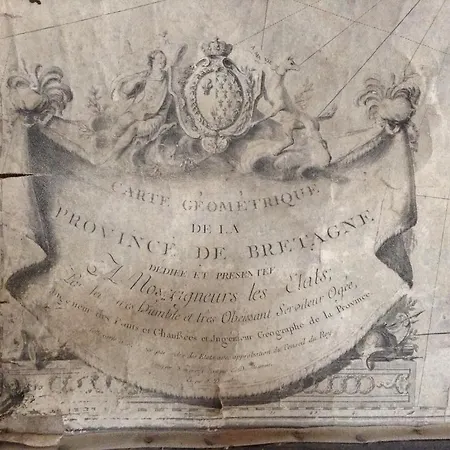 CARTE GÉOMÉTRIQUE
DE LA
PROVINCE DE BRETAGNE
DEDIÉE ET PRESENTÉE
A Nosseigneurs les Etats;
Par leur très Humble et très Obeissant Serviteur Ogée,
Ingénieur des Ponts et Chaussées et Ingénieur Géographe de la Province
approbation du Conseil du Roy